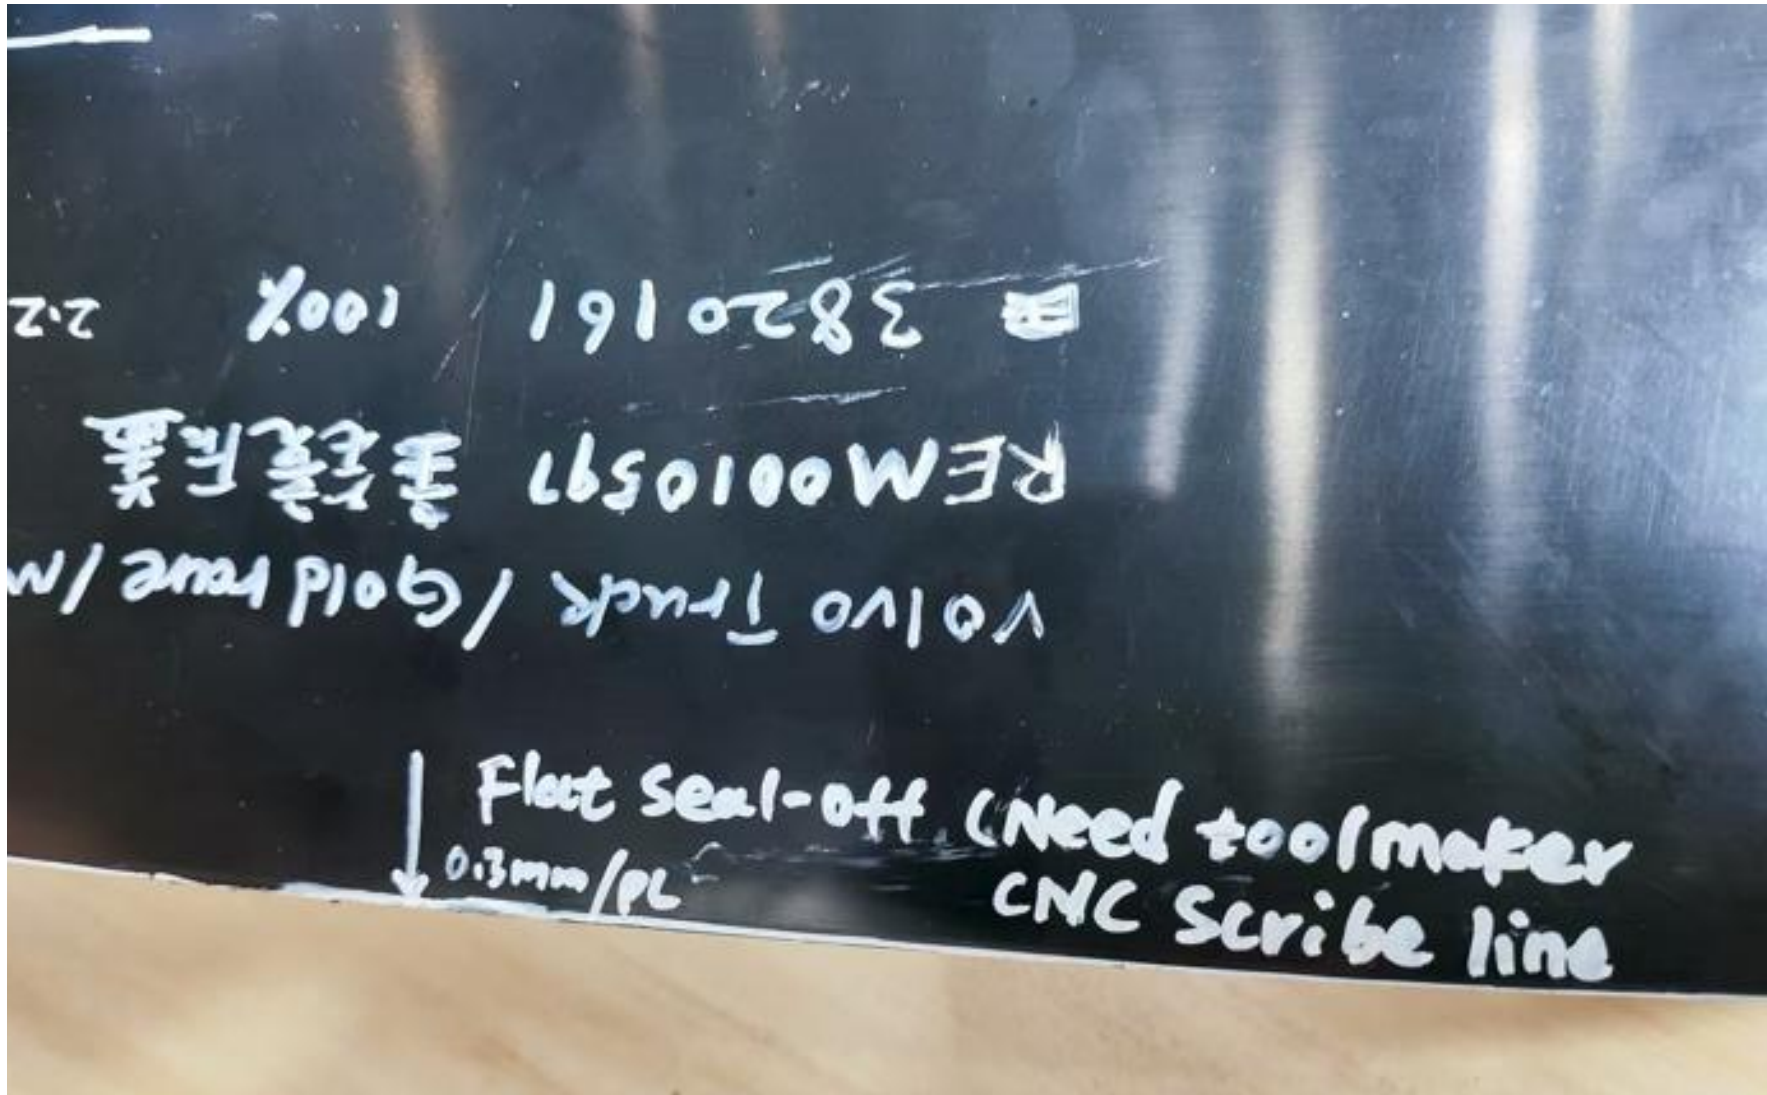 Volvo Truck / Goldhave / M
REM0010597 主镜后盖
3820161 100% 2.2
Flat seal-off (Need toolmaker
0.3mm/PL
CNC Scribe line